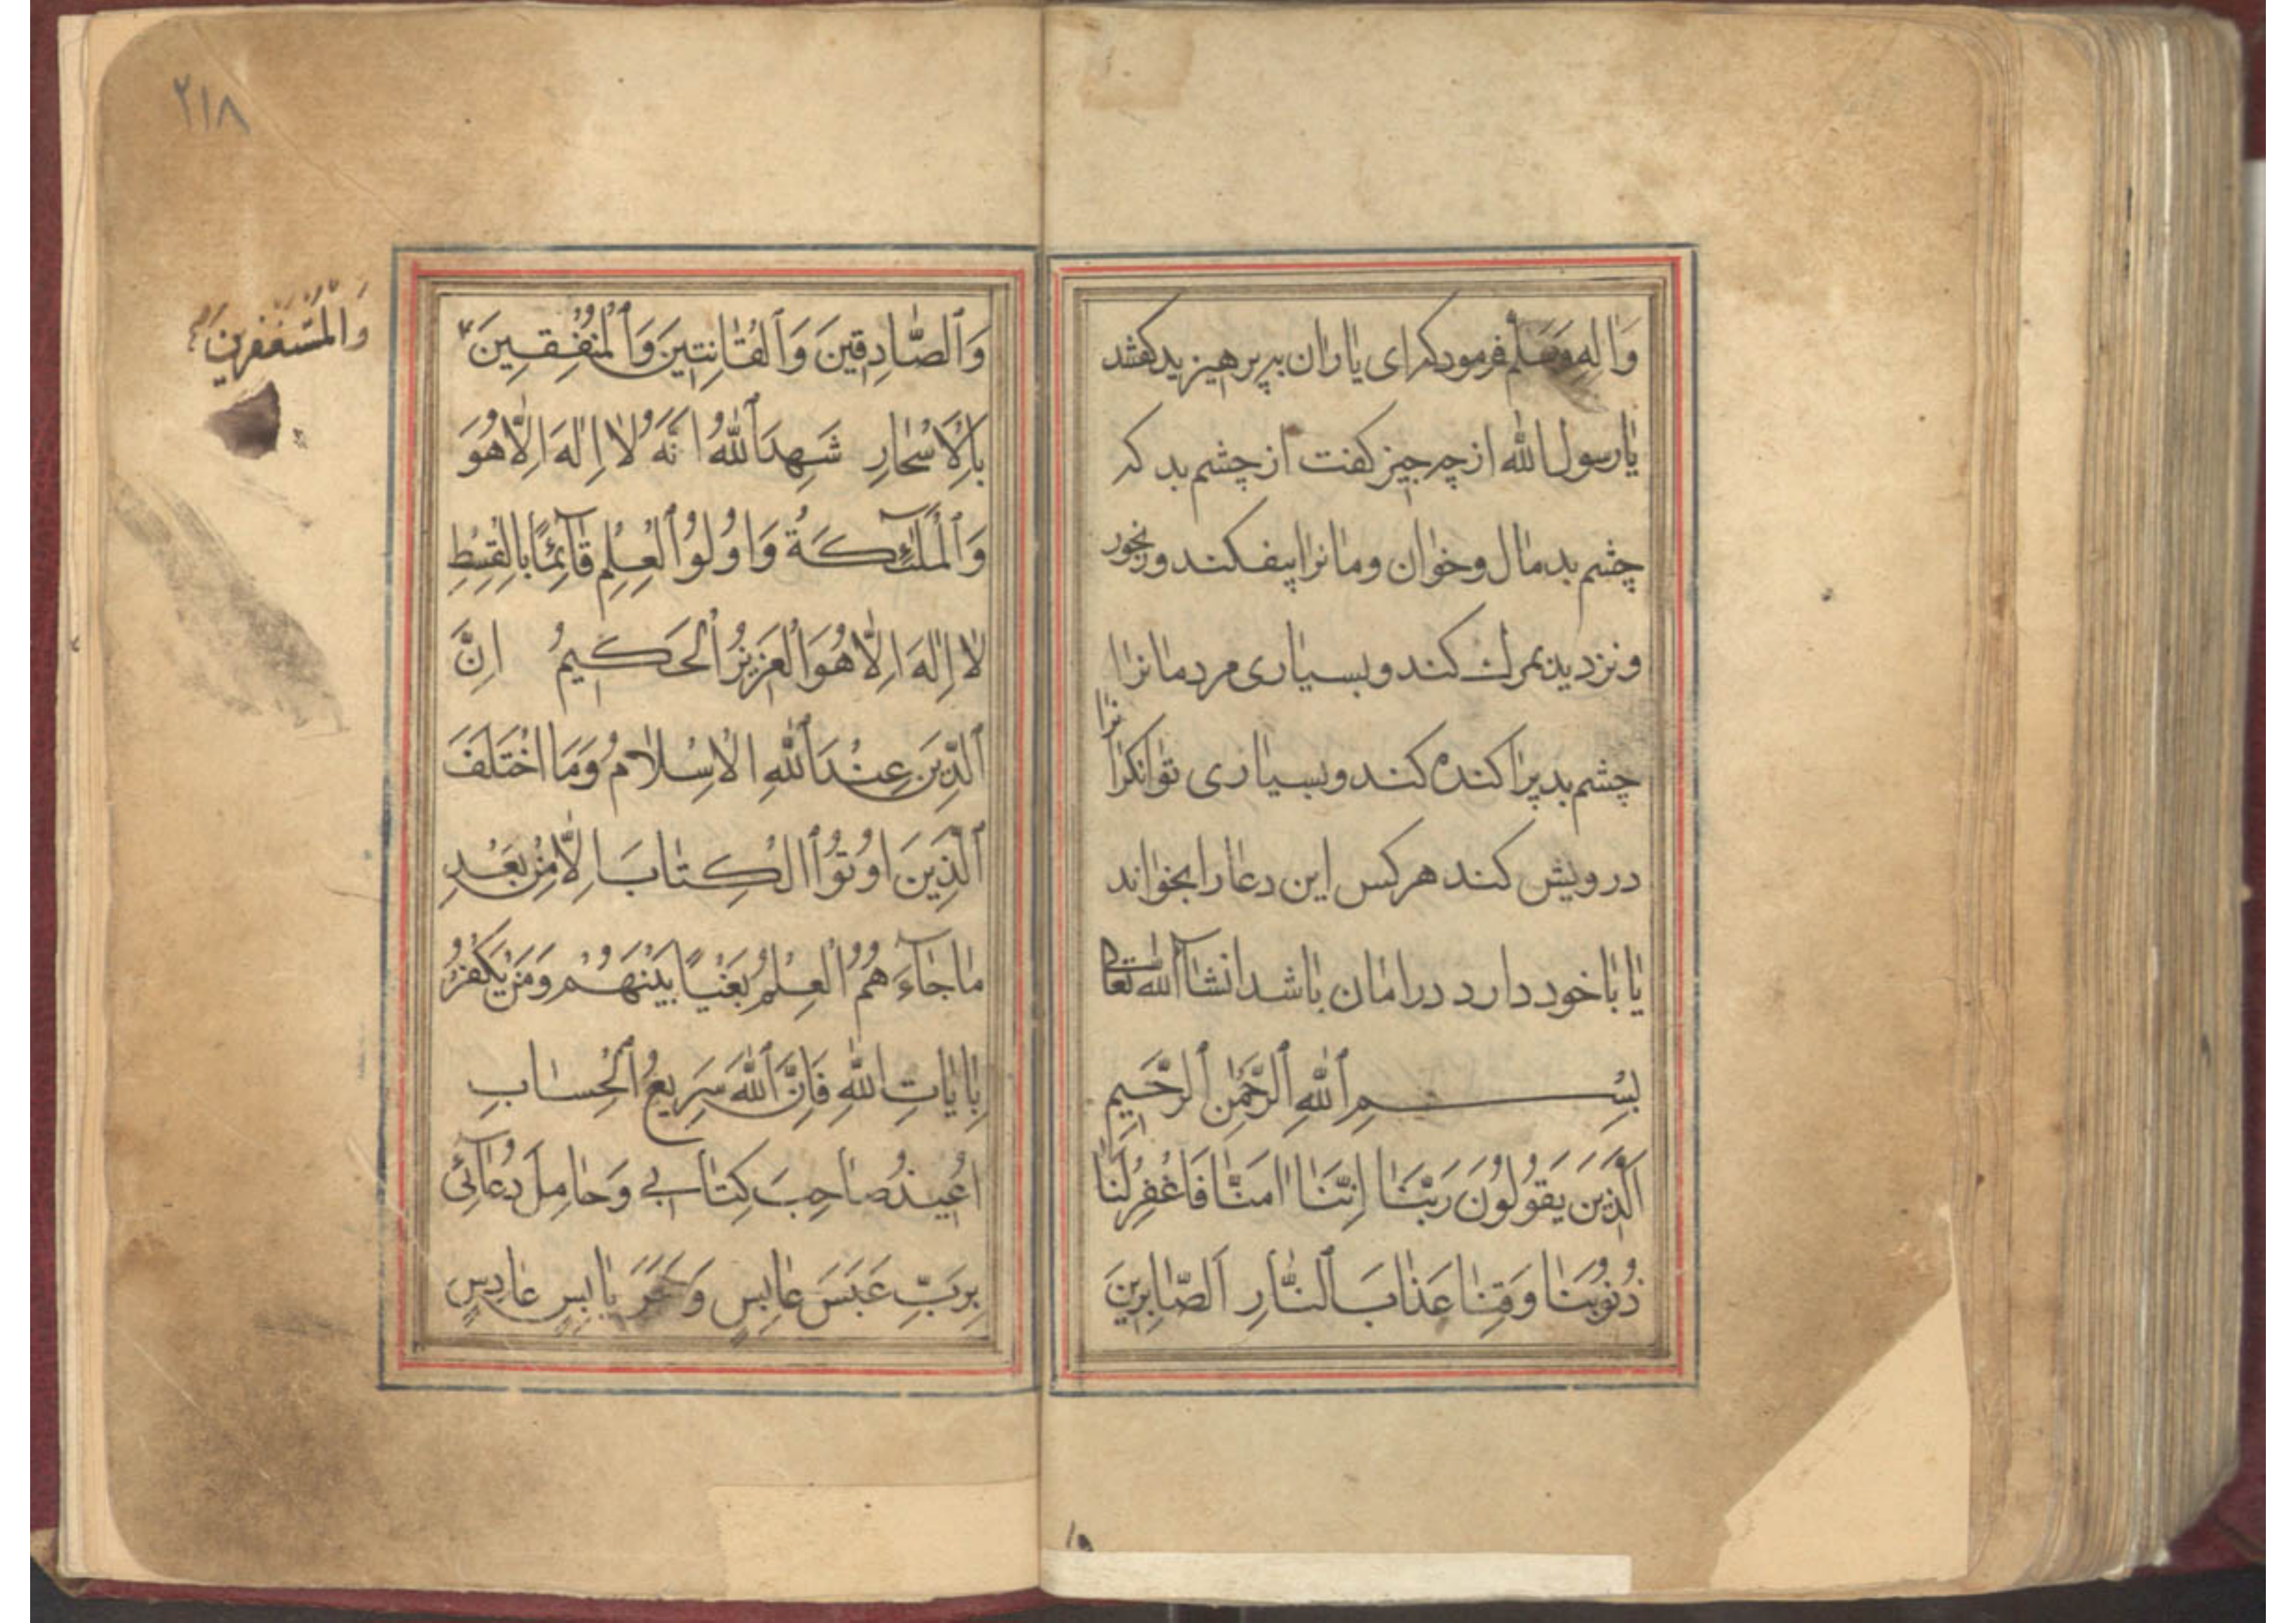 وَاٰلِهِ وَسَلَّم فرمود که ای یاران بپرهیزید گفتند
یا رسول الله از چه چیز گفت از چشم بد که
چشم بد مال و خوان و مانرا بیفکند و رنجور
و نزدیک بمرك کند و بسیاری مردمانرا
چشم بد پراکنده کند و بسیاری توانکرانرا
درویش کند هر کس این دعا را بخواند
یا با خود دارد در امان باشد انشآالله تعالی
بِسْمِ ٱللّٰهِ ٱلرَّحْمٰنِ ٱلرَّحِيمِ
اَلَّذِينَ يَقُولُونَ رَبَّنَا اِنَّنَا اٰمَنَّا فَاغْفِرْ لَنَا
ذُنُوبَنَا وَقِنَا عَذَابَ ٱلنَّارِ اَلصَّابِرِينَ
۲۱۸
وَٱلصَّادِقِينَ وَٱلْقَانِتِينَ وَٱلْمُنْفِقِينَ
وَالْمُسْتَغْفِرِينَ
بِالْاَسْحَارِ شَهِدَ ٱللّٰهُ اَنَّهُ لَا اِلٰهَ اِلَّا هُوَ
وَٱلْمَلٰٓئِكَةُ وَاُولُوا ٱلْعِلْمِ قَآئِمًا بِالْقِسْطِ
لَا اِلٰهَ اِلَّا هُوَ الْعَزِيزُ ٱلْحَكِيمُ اِنَّ
ٱلدِّينَ عِنْدَ ٱللّٰهِ الْاِسْلَامُ وَمَا اخْتَلَفَ
ٱلَّذِينَ اُوتُوا الْكِتَابَ اِلَّا مِنْ بَعْدِ
مَا جَآءَ هُمُ الْعِلْمُ بَغْيًا بَيْنَهُمْ وَمَنْ يَكْفُرْ
بِاٰيَاتِ اللّٰهِ فَاِنَّ ٱللّٰهَ سَرِيعُ ٱلْحِسَابِ
اُعِيذُ صَاحِبَ كِتَابِي وَحَامِلَ دُعَآئِي
بِرَبِّ عَبَسَ عَابِسٍ يَابِسٍ